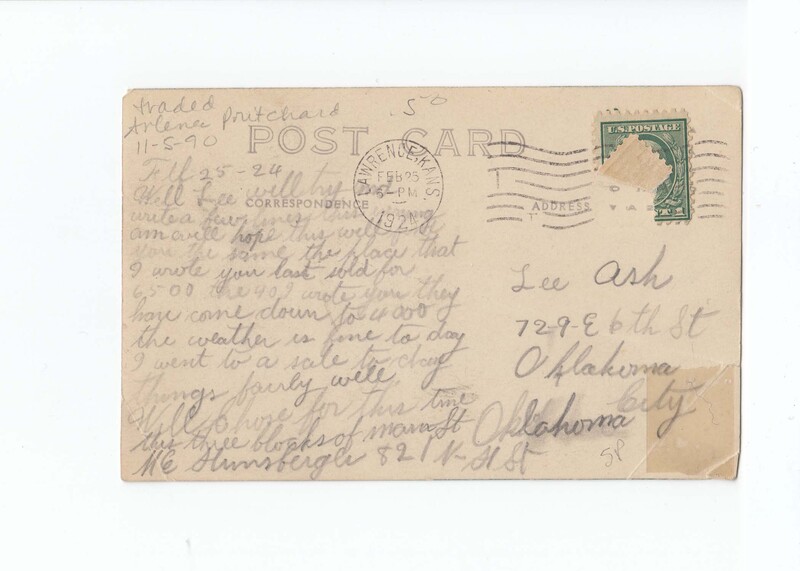 traded
Arlene Pritchard .50
11-5-90
POST CARD
LAWRENCE, KANS.
FEB 25
5-PM
192
U.S. POSTAGE
CORRESPONDENCE
ADDRESS
25-24
Well Lee will try and
write a few lines this
am well hope this will
you the same the place that
I wrote you last sold for
6500 the 40 I wrote you they
have come down to 4000
the weather is fine to day
I went to a sale to day
things fairly well
Will close for this time
this three blocks of main St
821 N- St
Lee Ash
729-E 6th St
Oklahoma
City
Oklahoma
SP